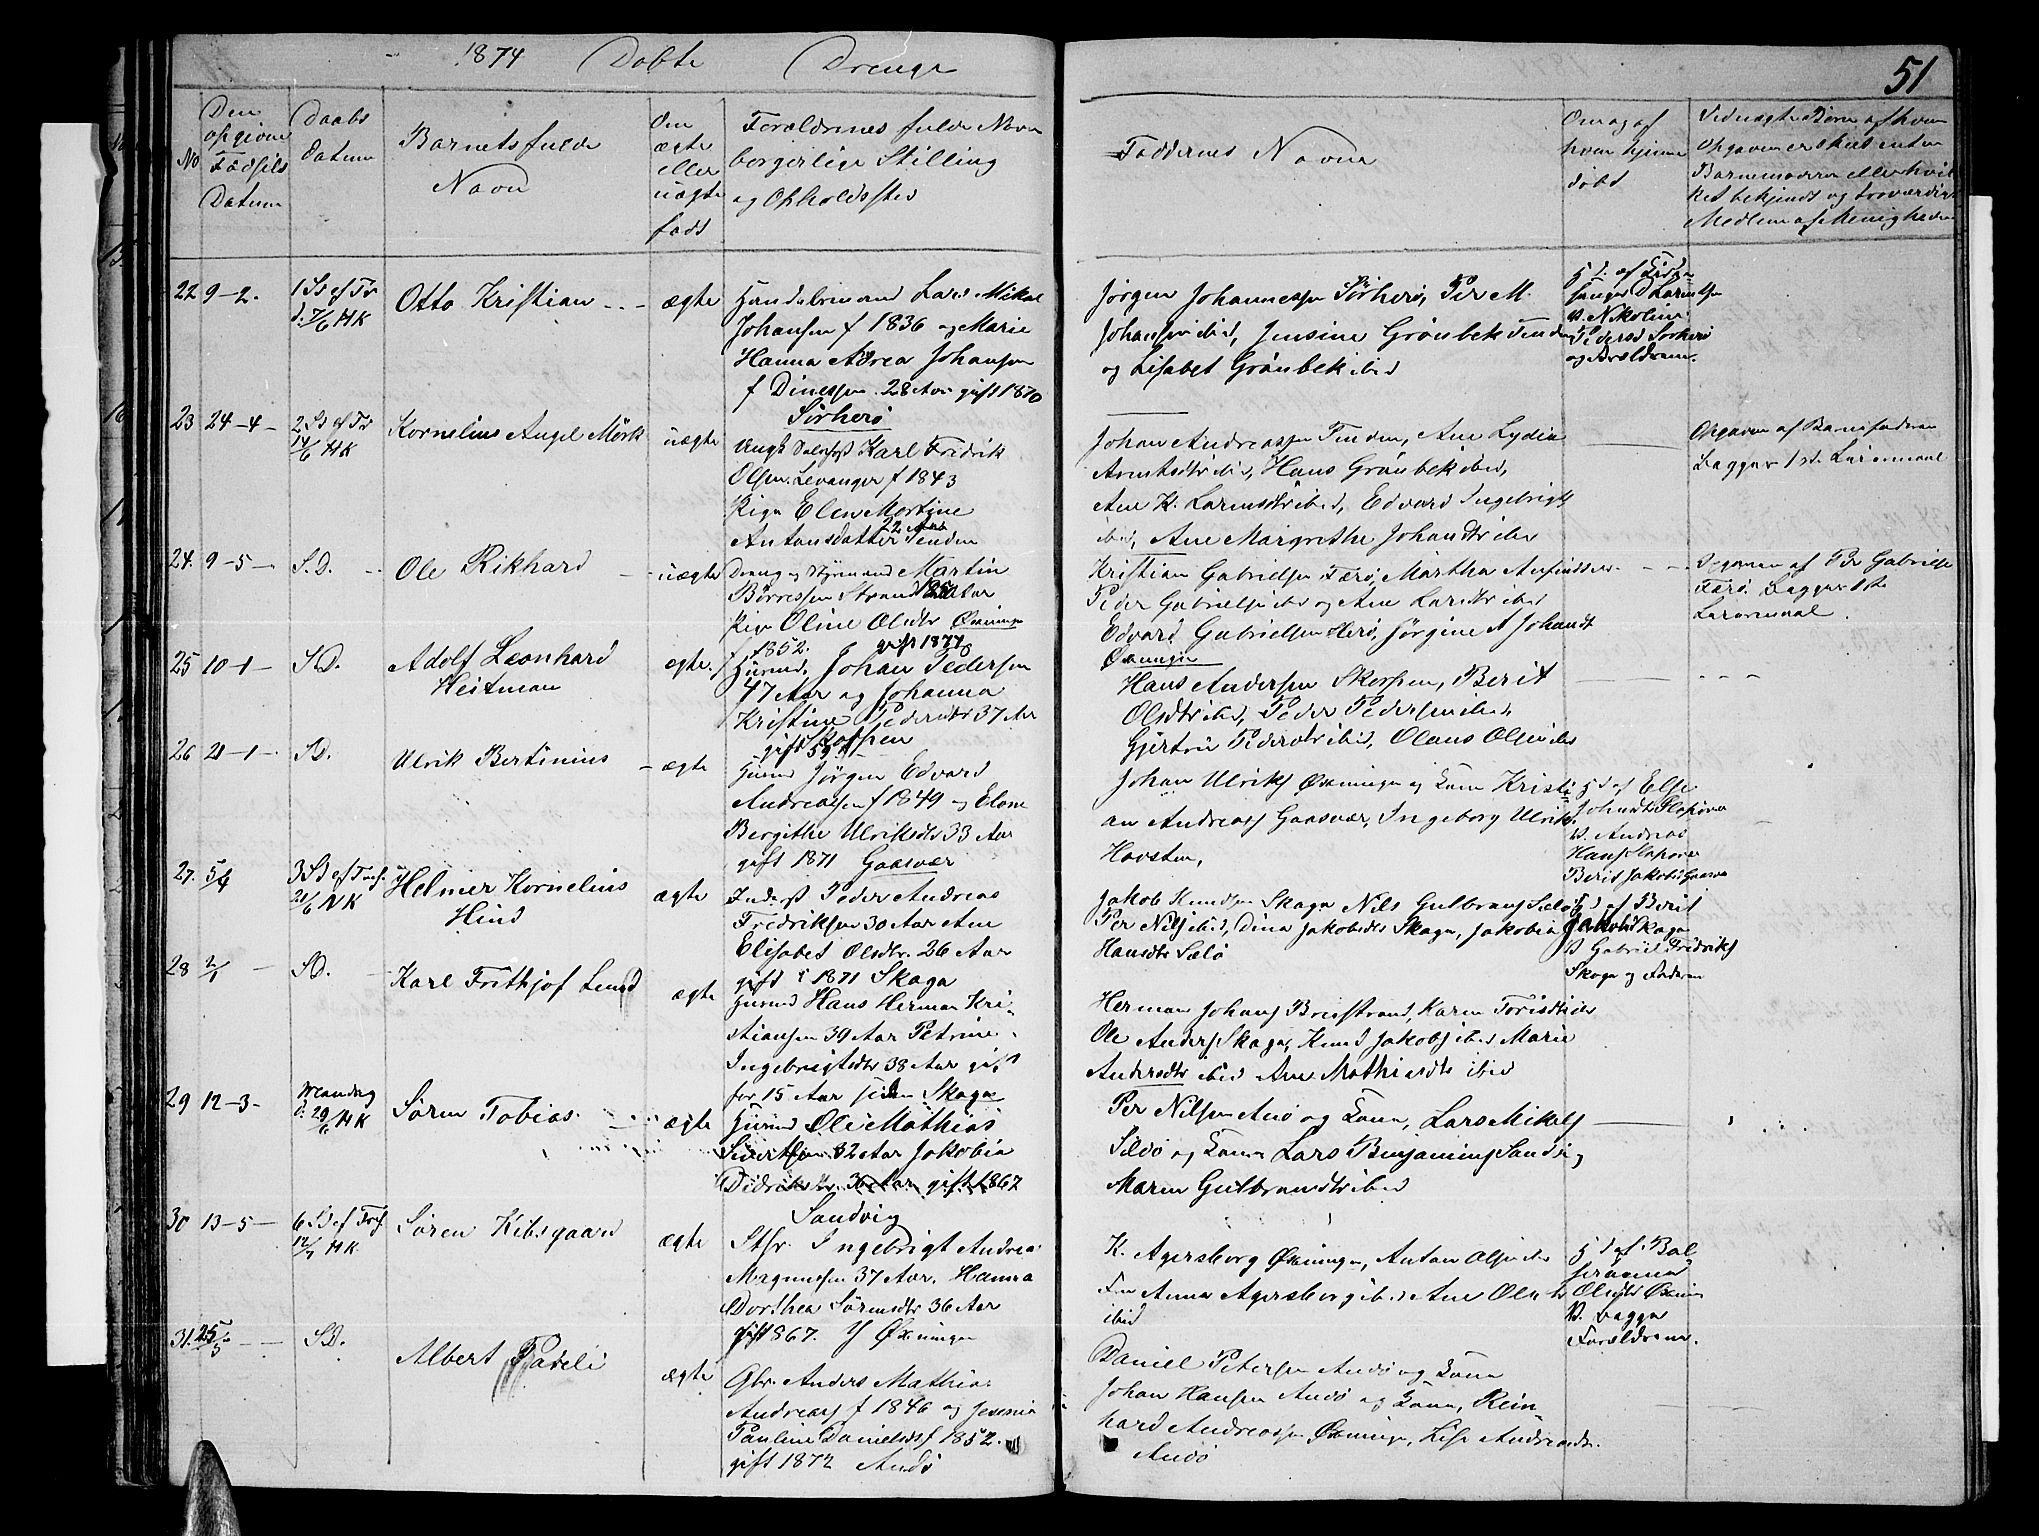 1874 Døbte Drenge
51
No
Den
opgivne
Fødsels
Datum
Daabs
datum
Barnets fulde
Navn
Om
ægte
eller
uægte
født
Forældrenes fulde Navn
borgerlige Stilling
og Opholdssted
Faddernes Navne
Om og af
hvem hjemme
døbt
Ved uægte Børn af hvem
Opgaven er skeet enten
Barnemoderen eller hvil
ket bekjendt og troværdigt
Medlem af Menigheden
22 9-2. 1 S. ef Tr
d. 7/6 HK
Otto Kristian ægte
Lars Mikal
Johansen f 1836 og Marie
Hanna Johansen
f Dinessen 28 Aar gift 1870
Sørherø
Jørgen Johannessen Sørherø, Per M.
Johansen ibid, Jensine Grønbek Tenden
og Lisabet Grønbek ibid
v. Nikoline
Pedersd Sørherø
og Forældrene.
23 24-4- 2 S ef Tr
14/6 HK
Kornelius Angel Mørk uægte
Karl Fredrik
Olsen Levanger f 1843
Pige Elen Martine
Antonsdatter 22 Aar Tenden
Johan Andreassen Tenden, Ane Lydia
ibid, Hans Grønbek ibid,
Ane K. Larsdtr ibid, Edvard Ingebrigts
ibid, Ane Margrethe Johansdtr ibid
Opgaven af Barnefaderen
Begges 1st Leiermaal
24. 9-5- S.D.
Ole Rikhard uægte
Martin
Børressen Strand 25 Aar
Pige Oline Olsdtr Øxningen
1852.
Kristian Gabrielsen Færø, Martha
Peder Gabrielsen ibid og Ane Larsdtr ibid
Edvard Gabrielsen Herø, Jørgine A Johansd
Øxningen
Opgaven af Per Gabrielsen
Færø. Begges 1ste
Leiermaal.
25 10-1- S.D.
Adolf Leonhard
Heitman
ægte.
gift 1877
Husmd. Johan Pedersen
47 Aar og Johanna
Kristine Pedersdtr 37 Aar
gift Skorpen
Hans Andersen Skorpen, Berit
Olsdtr ibid, Peder Pedersen ibid,
Gjertru Pedersdtr ibid, Olaus Olsen ibid
26 21-1- S.D.
Ulrik Bertinius ægte
Husmd Jørgen Edvard
Andreassen f 1849 og Elene
Bergithe Ulriksdtr 33 Aar
gift 1871 Gaasvær
Johan Ulriks Øxningen og Kone Kristi
an Andreass Gaasvær, Ingeborg Ulriksd
Havsten,
Hjd af Else
Johansdtr Flapøen
v. Andreas
Hans Flapøen
Berit Jakobsd Gaasv
27. 5/4 3 S ef Tref.
21/6 NK
Helmer Kornelius
Hind
ægte
Inderst Peder Andreas
Fredriksen 30 Aar Ane
Elisabet Olsdtr. 26 Aar
gift i 1871 Skaga
Jakob Knudsen Skaga Nils Gulbrans Sælø
Per Nils ibid, Dina Jakobsdtr Skaga, Jakobia
Hansdtr Sælø
Hjd af Berit
Jakobsd Skaga
v Gabriel Fredriks
Skaga og Faderen
28 2/1 - S.D.
Karl Frithjof Lund ægte
Husmd Hans Herman Kri-
stiansen 39 Aar Petrine
Ingebrigtsdtr 38 Aar gift
for 15 Aar siden Skaga
Herman Johans Breistrand, Karen Torisdtr ibid
Ole Anders Skaga, Knud Jakobs ibid Marie
Andersdtr ibid Ane Mathiasdtr ibid
29 12-3- Mandag
d. 29/6 HK
Søren Tobias ægte
Husmd Ole Mathias
Sivertsen 32 Aar Jakobia
Didriksdtr. 36 Aar gift 1867
Sandvig
Per Nilsen Anø og Kone, Lars Mikels
Sildø og Kone Lars Benjamins Sandvig
Maren Gulbransdtr ibid
30 13-5- 6 S ef Tref
12/7 HK
Søren Kibsgaard ægte
Stfr. Ingebrigt Andrea
Magnussen 37 Aar, Hanna
Dorthea Sørensdtr 36 Aar
gift 1867. Y Øxningen
K. Agersborg Øxningen, Anton Olsen ibid
Fru Anna Agersborg ibid Ane Olsdtr
ibid
Hjd af Bal
seranna
Olsdtr Øxnin
v. begge
Forældrene.
31. 25/5 - S.D.
Albert Pareli ægte
Gbr. Anders Mathias
Andreass f 1846 og Jesenia
Pauline Danielsd f 1852.
gift 1872 Andø
Daniel Petersen Andø og Kone
Johan Hansen Andø og Kone, Rein
hard Andreassen Øxningen, Lise Andreasdr.
Andø